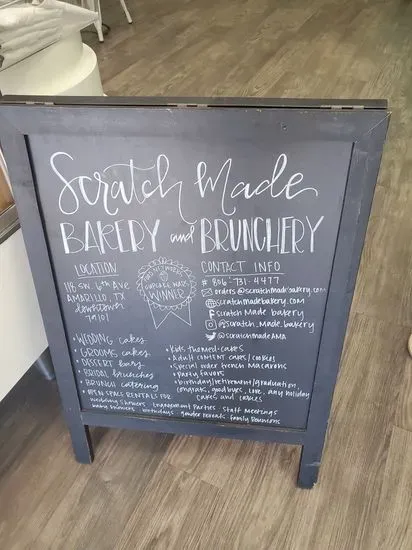 Scratch Made
BAKERY and BRUNCHERY
LOCATION
118 SW 6th AVE
AMARILLO, TX
downtown
79101
FOOD NETWORK'S
CUPCAKE WARS
WINNER
CONTACT INFO
# 806-731-4477
orders@scratchmadebakery.com
scratchmadebakery.com
Scratch Made bakery
@scratch_made.bakery
@scratchmadeAMA
• WEDDING cakes
• GROOMS cakes
• DESSERT bars
• BRIDAL brunches
• BRUNCH catering
• OPEN SPACE RENTALS FOR
wedding showers engagement Parties staff meetings
baby showers birthdays gender reveals family Reunions
• Kids themed cakes
• Adult content cakes/cookies
• Special order french Macarons
• party favors
• birthday/retirement/graduation,
congrats, goodbyes, love, any holiday
cakes and cookies